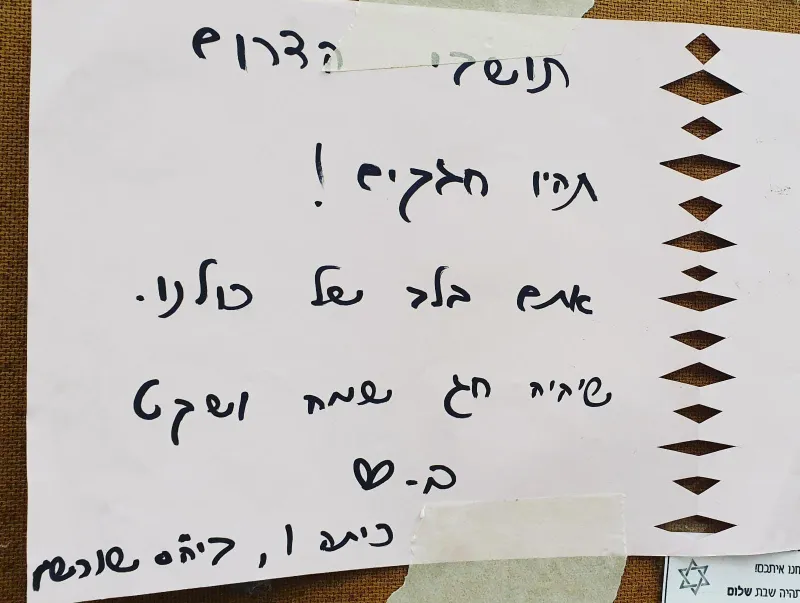 תושבי הדרום
תהיו חזקים!
אתם בלב של כולנו.
שיהיה חג שמח ושקט
ב-♡
כיתה ו, ביה"ס שורשים
חנו איתכם!
תהיה שבת שלום